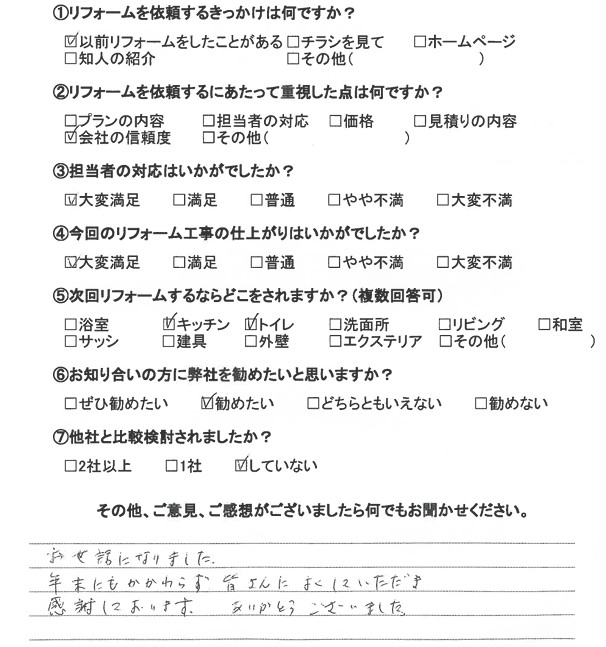 ①リフォームを依頼するきっかけは何ですか？
☑以前リフォームをしたことがある □チラシを見て □ホームページ
□知人の紹介 □その他( )
②リフォームを依頼するにあたって重視した点は何ですか？
□プランの内容 □担当者の対応 □価格 □見積りの内容
☑会社の信頼度 □その他( )
③担当者の対応はいかがでしたか？
☑大変満足 □満足 □普通 □やや不満 □大変不満
④今回のリフォーム工事の仕上がりはいかがでしたか？
☑大変満足 □満足 □普通 □やや不満 □大変不満
⑤次回リフォームするならどこをされますか？(複数回答可)
□浴室 ☑キッチン ☑トイレ □洗面所 □リビング □和室
□サッシ □建具 □外壁 □エクステリア □その他( )
⑥お知り合いの方に弊社を勧めたいと思いますか？
□ぜひ勧めたい ☑勧めたい □どちらともいえない □勧めない
⑦他社と比較検討されましたか？
□2社以上 □1社 ☑していない
その他、ご意見、ご感想がございましたら何でもお聞かせください。
お世話になりました。
年末にもかかわらず 皆さんに よくしていただき
感謝しております。 ありがとう ございました。